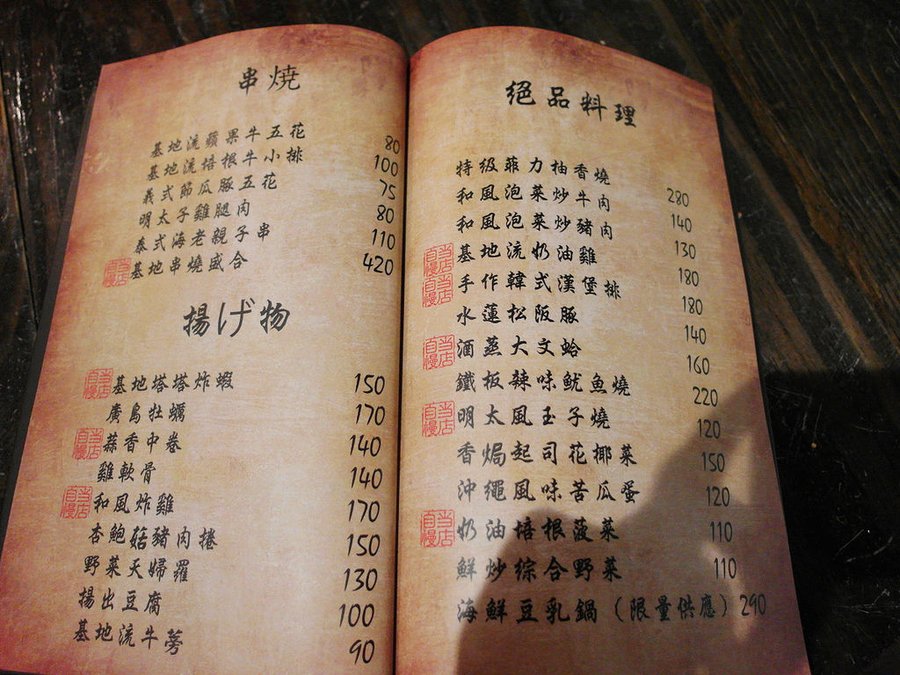 串燒
基地流蘋果牛五花 80
基地流培根牛小排 100
義式節瓜豚五花 75
明太子雞腿肉 80
泰式海老親子串 110
当店自慢 基地串燒盛合 420
揚げ物
当店自慢 基地塔塔炸蝦 150
廣島牡蠣 170
当店自慢 蒜香中卷 140
雞軟骨 140
当店自慢 和風炸雞 170
杏鮑菇豬肉捲 150
野菜天婦羅 130
揚出豆腐 100
基地流牛蒡 90
絕品料理
特级菲力柚香燒 280
和風泡菜炒牛肉 140
和風泡菜炒豬肉 130
当店自慢 基地流奶油雞 180
当店自慢 手作韓式漢堡排 180
水蓮松阪豚 140
当店自慢 酒蒸大文蛤 160
鐵板辣味魷魚燒 220
当店自慢 明太風玉子燒 120
香焗起司花椰菜 150
沖繩風味苦瓜蛋 120
当店自慢 奶油培根菠菜 110
鮮炒综合野菜 110
海鮮豆乳鍋（限量供應）290